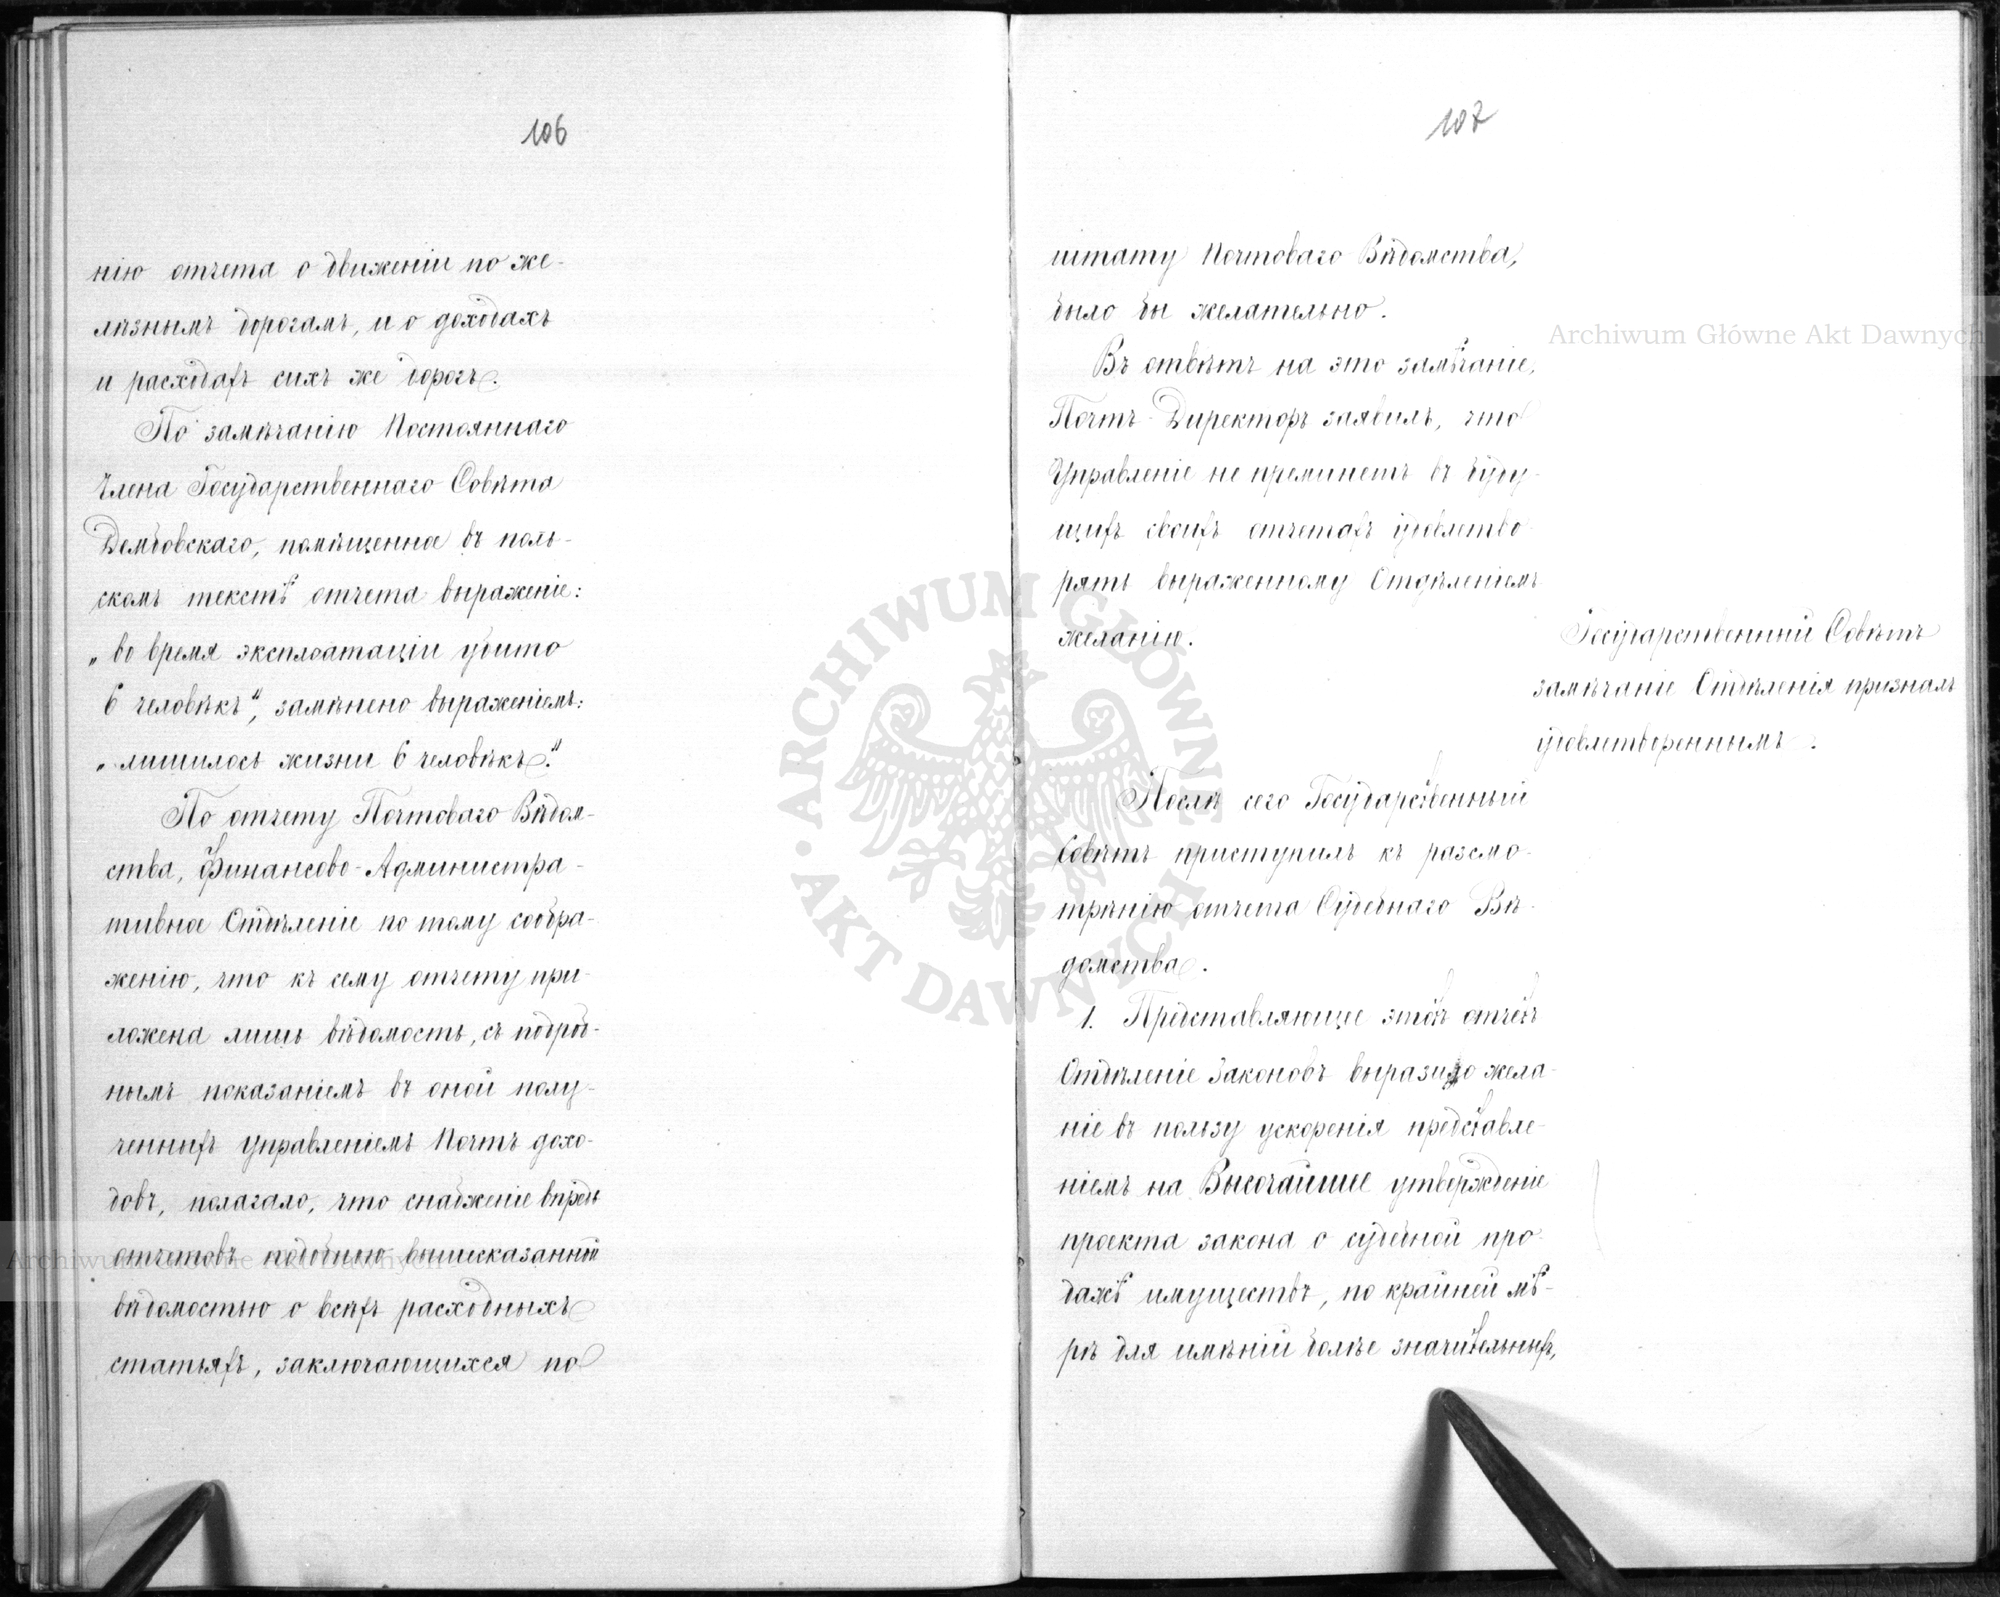 106
нію отчета о движеніи по же-
лѣзнымъ дорогамъ, и о доходахъ
и расходахъ сихъ же дорогъ.
По замѣчанію Постояннаго
Члена Государственнаго Совѣта
Дембовскаго, помѣщенное въ поль-
скомъ текстѣ отчета выраженіе:
„во время эксплоатаціи убито
6 человѣкъ", замѣнено выраженіемъ:
„лишилось жизни 6 человѣкъ."
По отчету Почтоваго Вѣдом-
ства, Финансово-Администра-
тивное Отдѣленіе по тому сообра-
женію, что къ сему отчету при-
ложена лишь вѣдомость, съ подроб-
нымъ показаніемъ въ оной полу-
ченныхъ Управленіемъ Почтъ дохо-
довъ, полагало, что снабженіе впредь
отчетовъ подобною вышесказанной
вѣдомостью о всѣхъ расходныхъ
статьяхъ, заключающихся по
107
штату Почтоваго Вѣдомства,
было бы желательно.
Въ отвѣтъ на это замѣчаніе,
Почтъ-Директоръ заявилъ, что
Управленіе не преминетъ въ буду-
щихъ своихъ отчетахъ удовлетво-
рять выраженному Отдѣленіемъ
желанію.
Государственный Совѣтъ
замѣчаніе Отдѣленія призналъ
удовлетвореннымъ.
Послѣ сего Государственный
Совѣтъ приступилъ къ разсмо-
трѣнію отчета Судебнаго Вѣ-
домства.
1. Представляющее этотъ отчетъ
Отдѣленіе Законовъ выразило жела-
ніе въ пользу ускоренія представле-
ніемъ на Высочайшее утвержденіе
проекта закона о судебной про-
дажѣ имуществъ, по крайней мѣ-
рѣ для имѣній болѣе значительныхъ,
Archiwum Główne Akt Dawnych
Archiwum Główne Akt Dawnych
ARCHIWUM GŁÓWNE AKT DAWNYCH